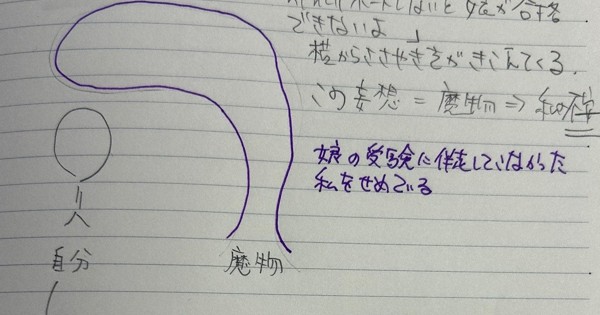 サポートしないと娘が合格
できないよ」
横からささやきごえがきこえてくる.
この妄想=魔物⇒私の
娘の受験に伴走していなかった
私をせめている
自分
魔物